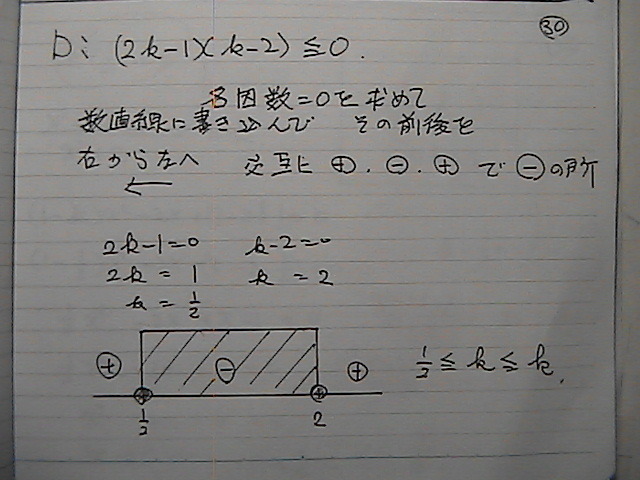 ㉚
D: (2k-1)(k-2)≦0.
各因数=0を求めて
数直線に書き込んで その前後を
右から左へ 交互に ⊕.⊖.⊕ で ⊖の所
←
2k-1=0 k-2=0
2k = 1 k = 2
k = 1/2
⊕ ⊖ ⊕ 1/2≦k≦k.
1/2 2